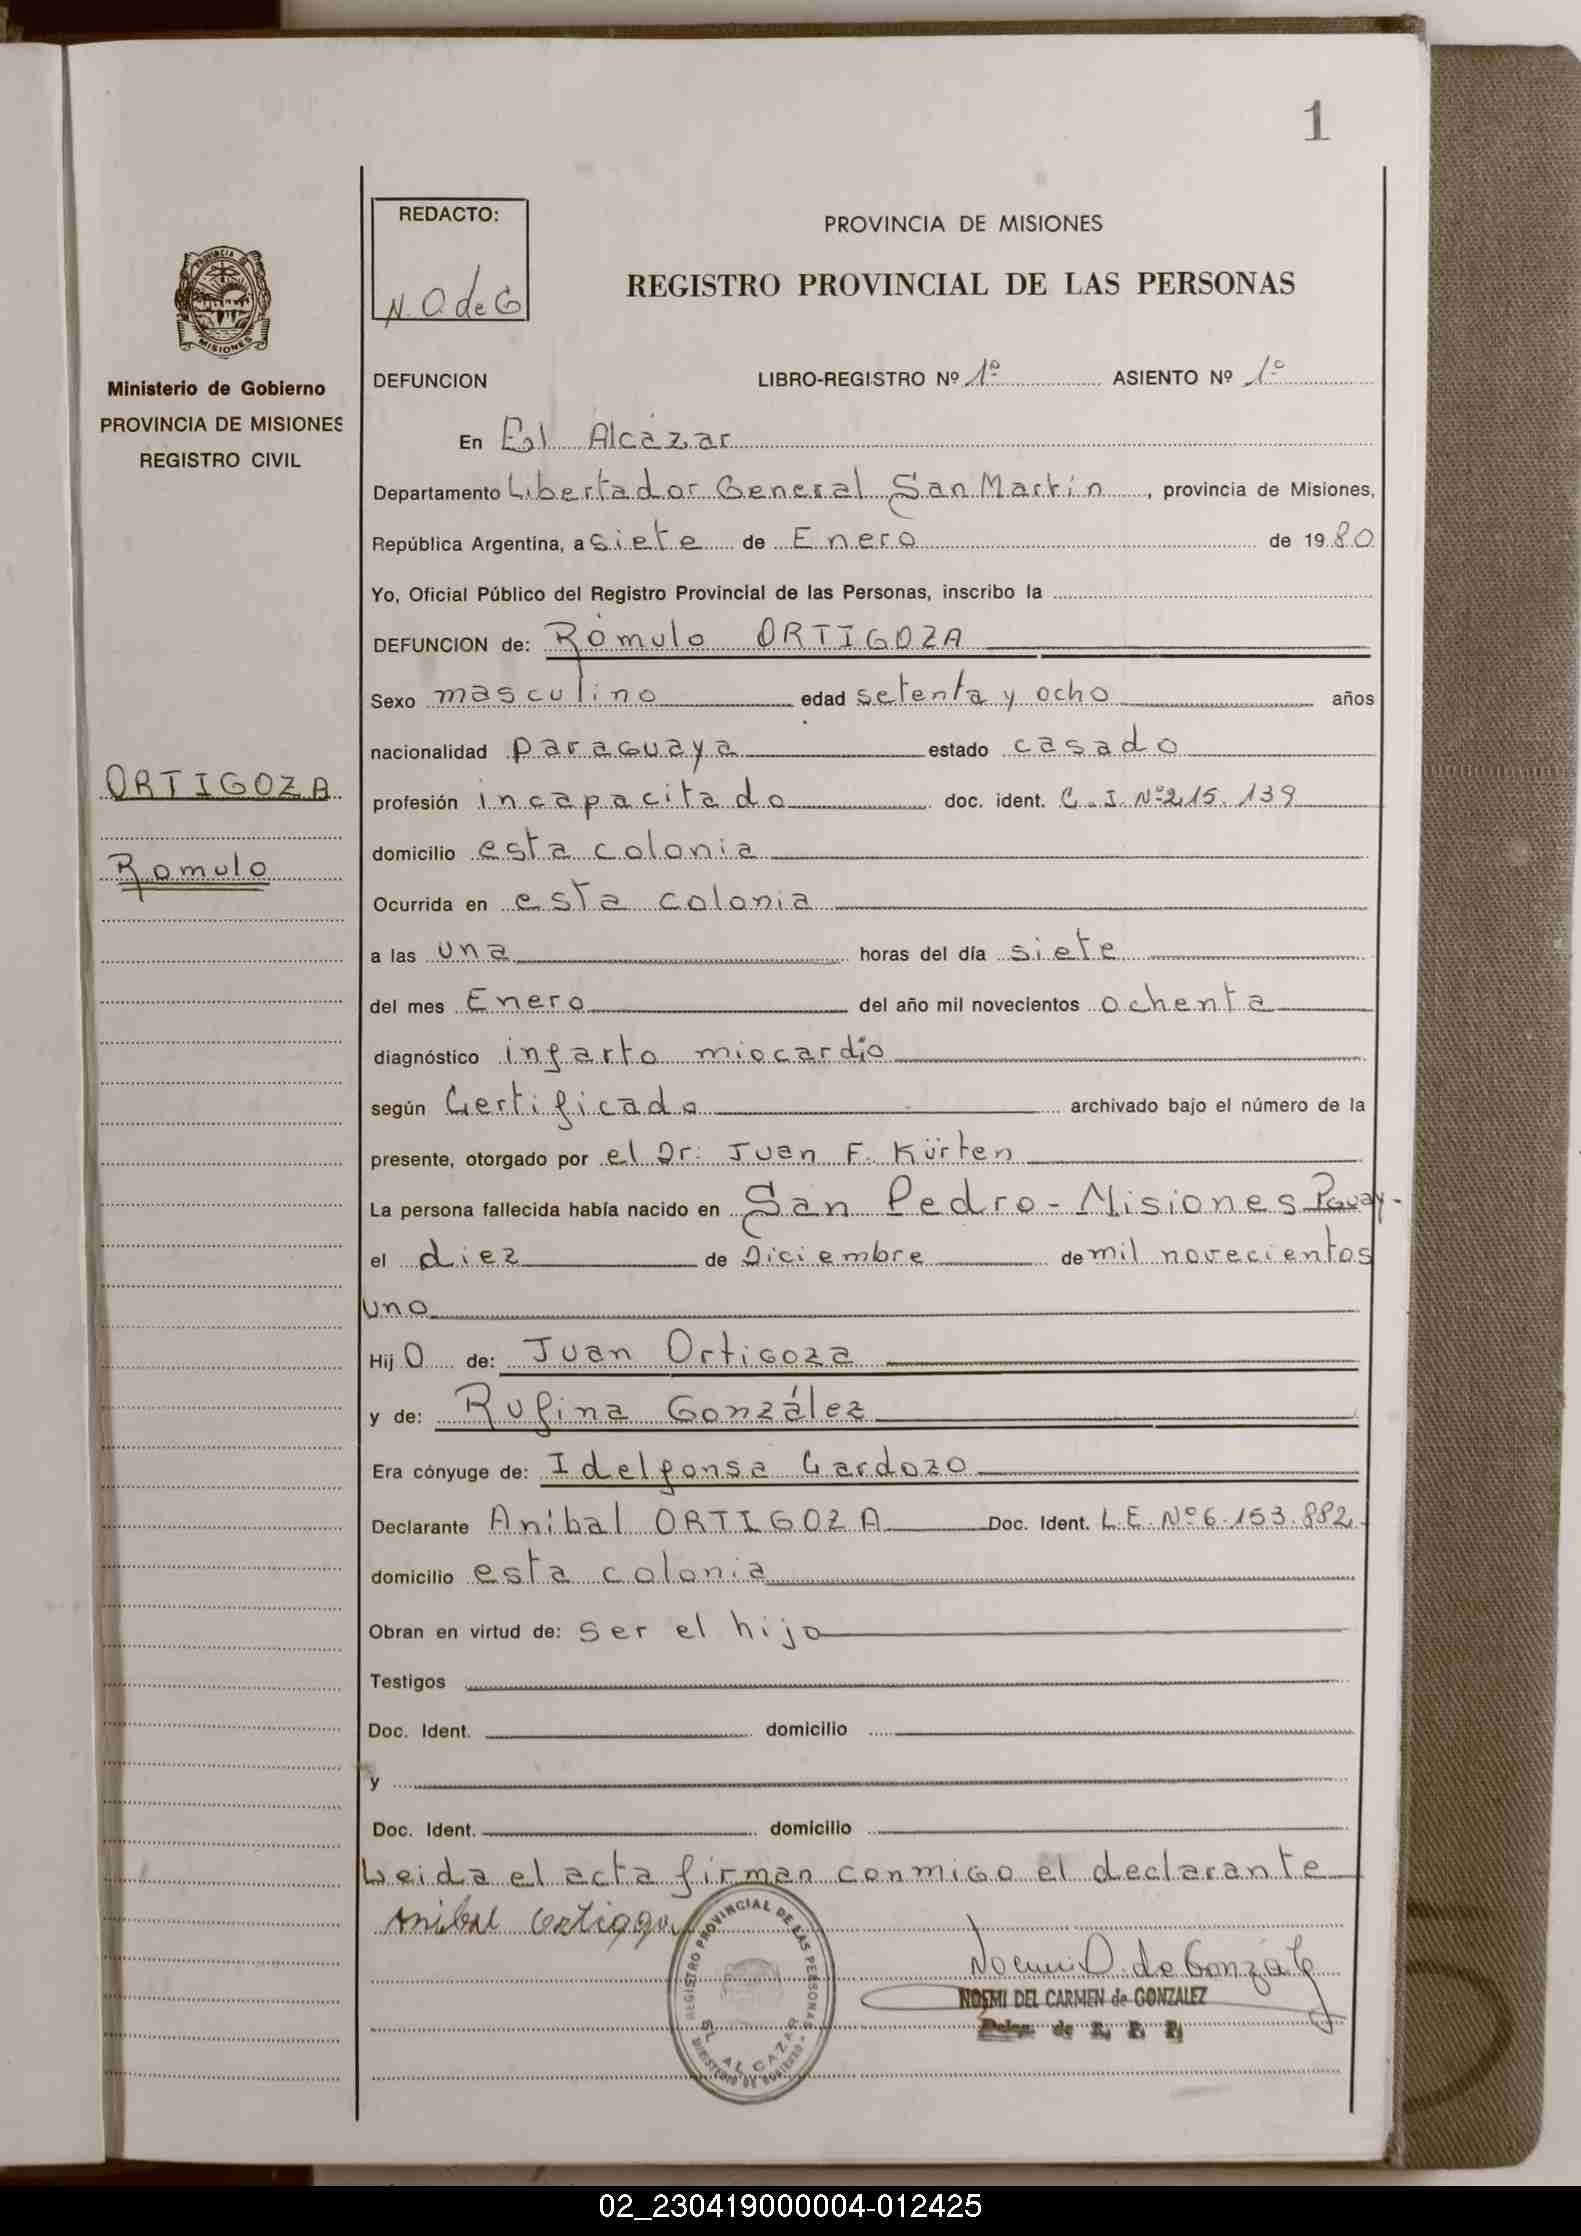 1
REDACTO:
N. O. de G
PROVINCIA DE MISIONES
REGISTRO PROVINCIAL DE LAS PERSONAS
PROVINCIA DE
MISIONES
Ministerio de Gobierno
PROVINCIA DE MISIONES
REGISTRO CIVIL
DEFUNCION LIBRO-REGISTRO Nº 1º ASIENTO Nº 1º
En El Alcázar
Departamento Libertador General San Martín, provincia de Misiones,
República Argentina, a siete de Enero de 1980
Yo, Oficial Público del Registro Provincial de las Personas, inscribo la
DEFUNCION de: Rómulo ORTIGOZA
Sexo masculino edad setenta y ocho años
nacionalidad paraguaya estado casado
ORTIGOZA
profesión incapacitado doc. ident. C. I. Nº 215.139
domicilio esta colonia
Romulo
Ocurrida en esta colonia
a las una horas del día siete
del mes Enero del año mil novecientos ochenta
diagnóstico infarto miocardio
según Certificado archivado bajo el número de la
presente, otorgado por el Dr: Juan F. Kürten
La persona fallecida había nacido en San Pedro - Misiones Paguay-
el diez de Diciembre de mil novecientos
uno
Hij O de: Juan Ortigoza
y de: Rufina González
Era cónyuge de: Idelfonsa Cardozo
Declarante Anibal ORTIGOZA Doc. Ident. L.E. Nº 6.153.882
domicilio esta colonia
Obran en virtud de: ser el hijo
Testigos
Doc. Ident. domicilio
y
Doc. Ident. domicilio
Leida el acta firman conmigo el declarante
Anibal Ortigoza
REGISTRO PROVINCIAL DE LAS PERSONAS
EL ALCAZAR
MINISTERIO DE GOBIERNO
Noemi D. de Gonzál
NOEMI DEL CARMEN de GONZALEZ
Deleg. de R. P. P.
02_230419000004-012425